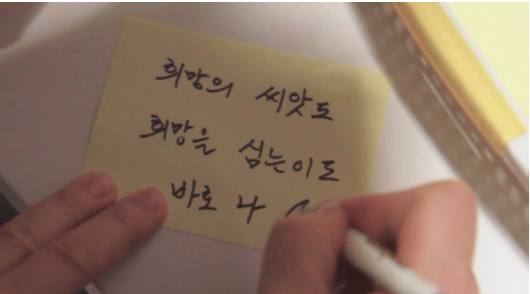 희망의 씨앗도
희망을 심는이도
바로 나